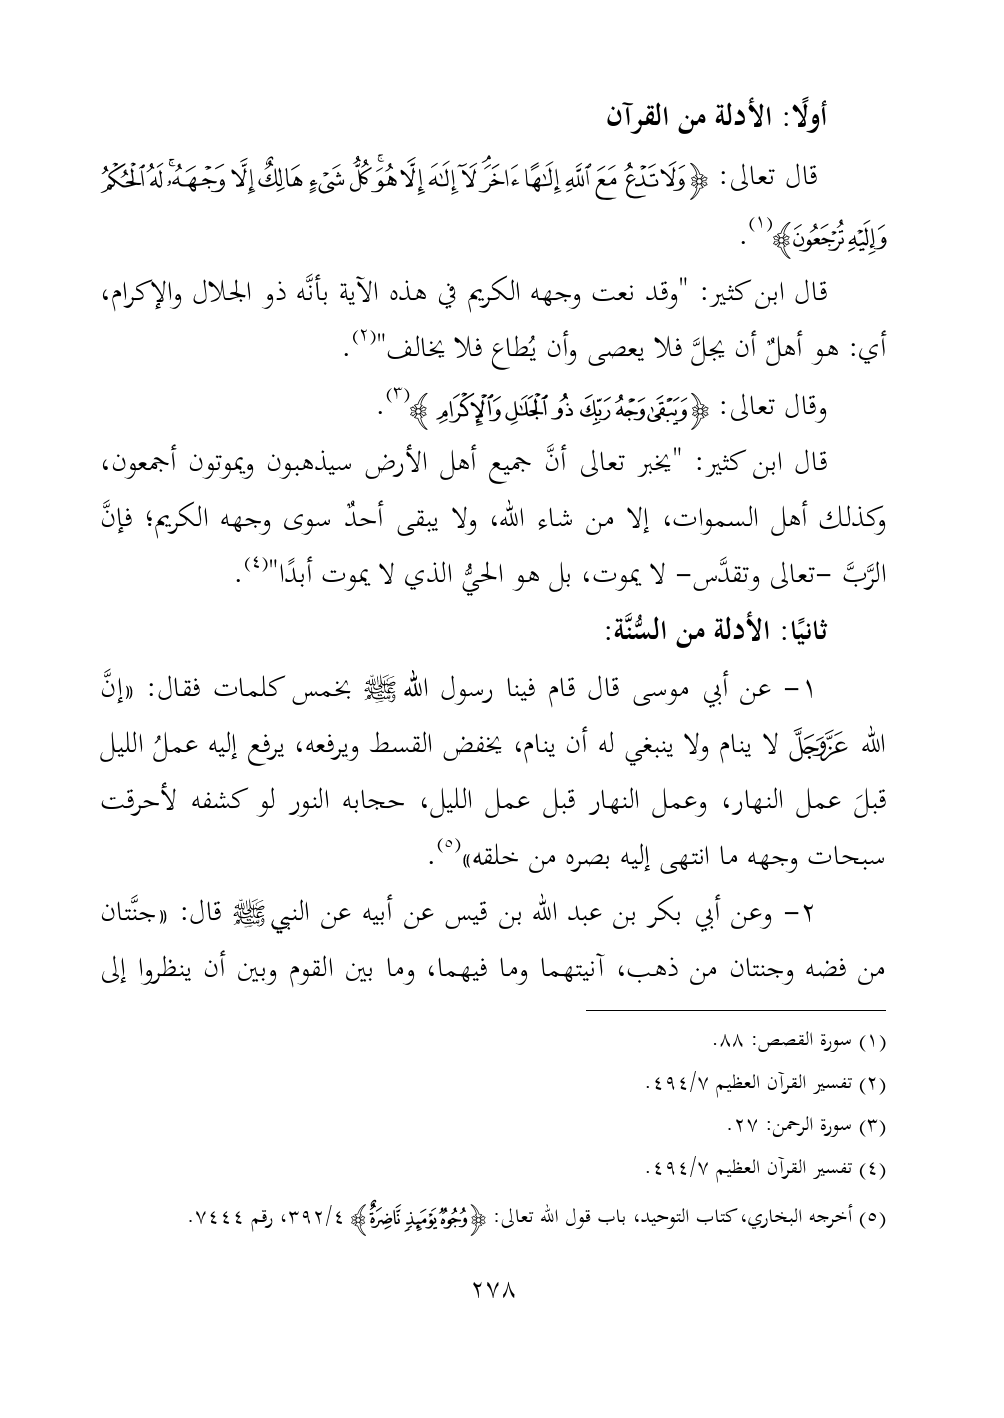 أولًا: الأدلة من القرآن
قال تعالى: ﴿وَلَا تَدْعُ مَعَ ٱللَّهِ إِلَٰهًا ءَاخَرَۘ لَآ إِلَٰهَ إِلَّا هُوَۚ كُلُّ شَىْءٍ هَالِكٌ إِلَّا وَجْهَهُۥۚ لَهُ ٱلْحُكْمُ
وَإِلَيْهِ تُرْجَعُونَ﴾(١).
قال ابن كثير: "وقد نعت وجهه الكريم في هذه الآية بأنَّه ذو الجلال والإكرام،
أي: هو أهلٌ أن يجلَّ فلا يعصى وأن يُطاع فلا يخالف"(٢).
وقال تعالى: ﴿وَيَبْقَىٰ وَجْهُ رَبِّكَ ذُو ٱلْجَلَٰلِ وَٱلْإِكْرَامِ ﴾(٣).
قال ابن كثير: "يخبر تعالى أنَّ جميع أهل الأرض سيذهبون ويموتون أجمعون،
وكذلك أهل السموات، إلا من شاء الله، ولا يبقى أحدٌ سوى وجهه الكريم؛ فإنَّ
الرَّبَّ –تعالى وتقدَّس– لا يموت، بل هو الحيُّ الذي لا يموت أبدًا"(٤).
ثانيًا: الأدلة من السُّنَّة:
١– عن أبي موسى قال قام فينا رسول الله ﷺ بخمس كلمات فقال: «إنَّ
الله عَزَّوَجَلَّ لا ينام ولا ينبغي له أن ينام، يخفض القسط ويرفعه، يرفع إليه عملُ الليل
قبلَ عمل النهار، وعمل النهار قبل عمل الليل، حجابه النور لو كشفه لأحرقت
سبحات وجهه ما انتهى إليه بصره من خلقه»(٥).
٢– وعن أبي بكر بن عبد الله بن قيس عن أبيه عن النبي ﷺ قال: «جنَّتان
من فضه وجنتان من ذهب، آنيتهما وما فيهما، وما بين القوم وبين أن ينظروا إلى
(١) سورة القصص: ٨٨.
(٢) تفسير القرآن العظيم ٤٩٤/٧.
(٣) سورة الرحمن: ٢٧.
(٤) تفسير القرآن العظيم ٤٩٤/٧.
(٥) أخرجه البخاري، كتاب التوحيد، باب قول الله تعالى: ﴿وُجُوهٌ يَوْمَئِذٍ نَّاضِرَةٌ﴾ ٣٩٢/٤، رقم ٧٤٤٤.
٢٧٨